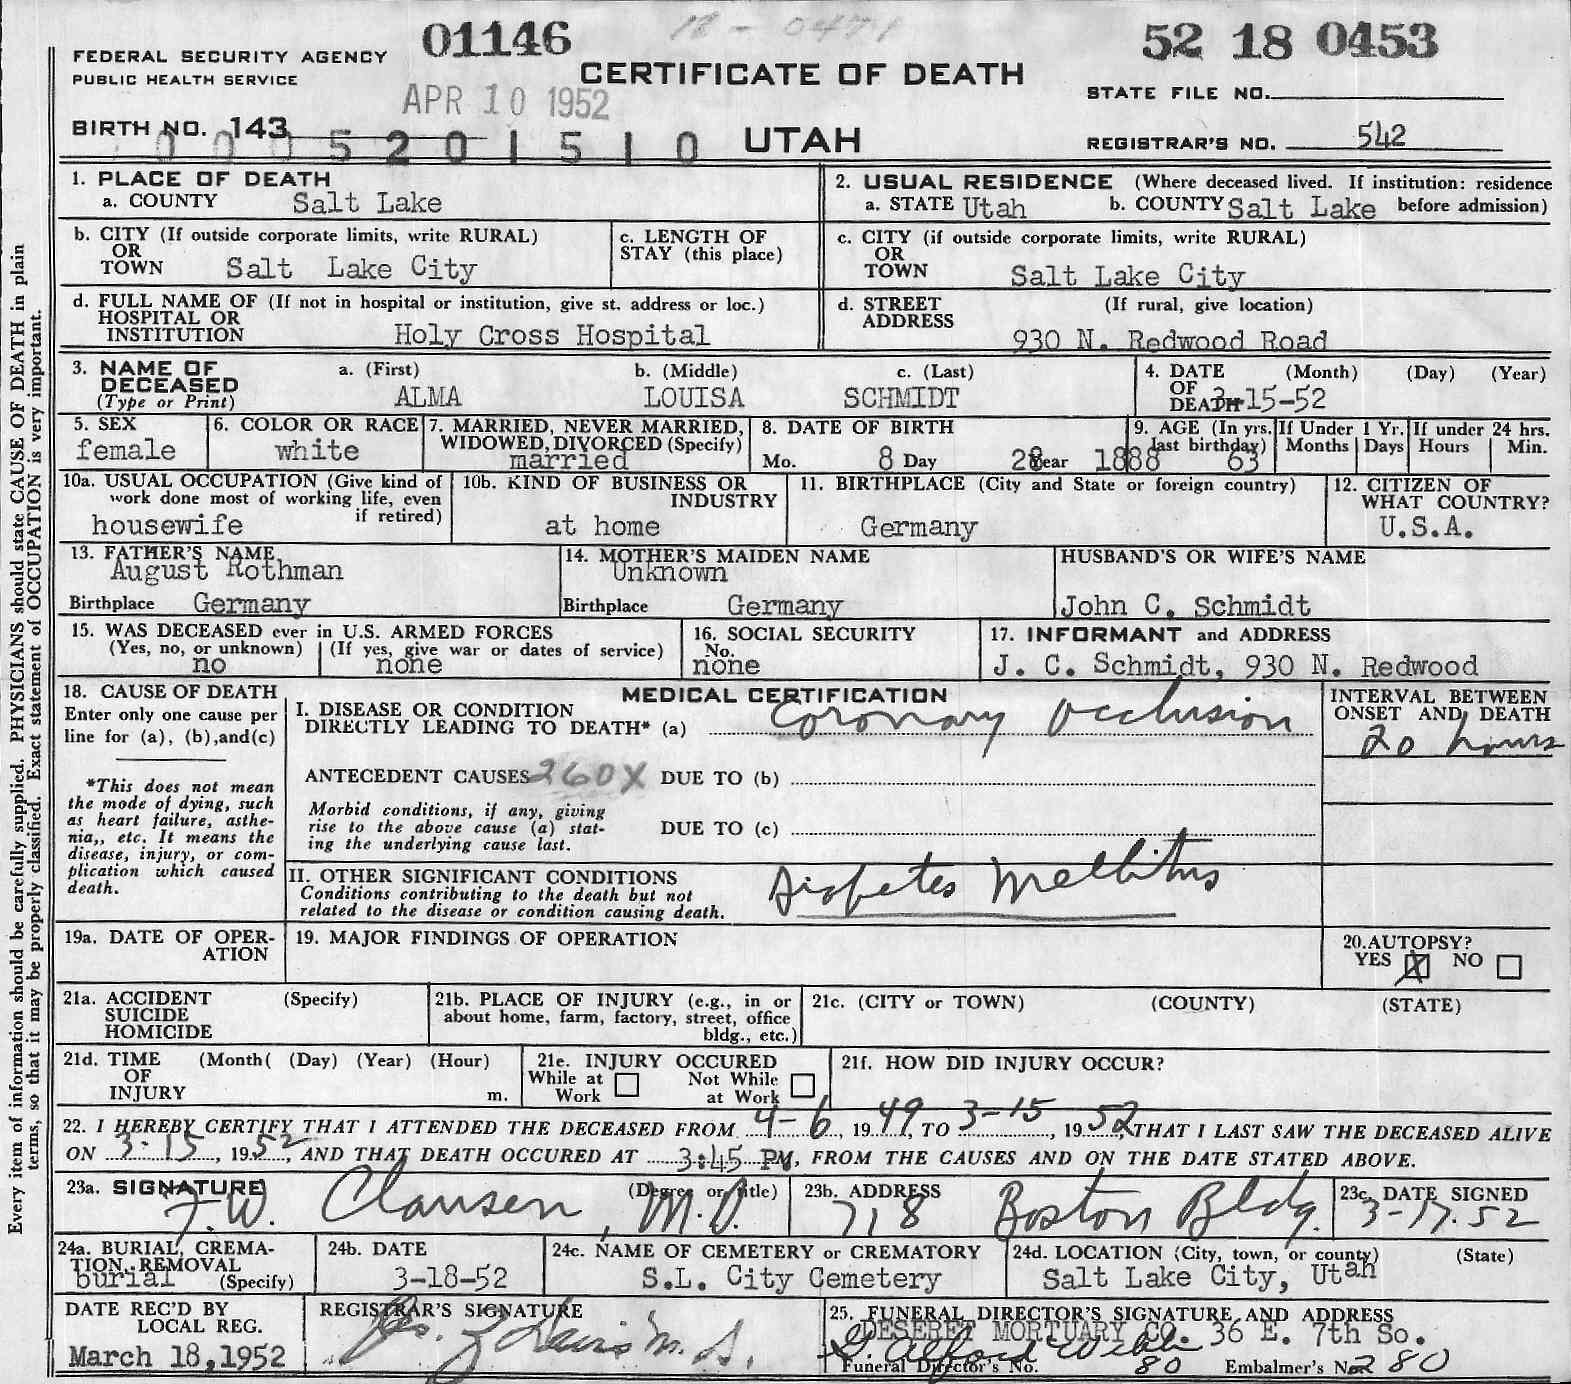 01146
18 - 0471
52 18 0453
FEDERAL SECURITY AGENCY
PUBLIC HEALTH SERVICE
CERTIFICATE OF DEATH
STATE FILE NO.
APR 10 1952
BIRTH NO. 143
0 0 0 5 2 0 1 5 1 0
UTAH
REGISTRAR'S NO. 542
1. PLACE OF DEATH
a. COUNTY Salt Lake
2. USUAL RESIDENCE (Where deceased lived. If institution: residence
a. STATE Utah b. COUNTY Salt Lake before admission)
b. CITY (If outside corporate limits, write RURAL)
OR
TOWN Salt Lake City
c. LENGTH OF
STAY (this place)
c. CITY (if outside corporate limits, write RURAL)
OR
TOWN Salt Lake City
d. FULL NAME OF (If not in hospital or institution, give st. address or loc.)
HOSPITAL OR
INSTITUTION Holy Cross Hospital
d. STREET (If rural, give location)
ADDRESS
930 N. Redwood Road
3. NAME OF a. (First) b. (Middle) c. (Last)
DECEASED
(Type or Print) ALMA LOUISA SCHMIDT
4. DATE (Month) (Day) (Year)
OF
DEATH 3-15-52
5. SEX
female
6. COLOR OR RACE
white
7. MARRIED, NEVER MARRIED,
WIDOWED, DIVORCED (Specify)
married
8. DATE OF BIRTH
Mo. 8 Day 28 Year 1888
9. AGE (In yrs.
last birthday)
63
If Under 1 Yr.
Months Days
If under 24 hrs.
Hours Min.
10a. USUAL OCCUPATION (Give kind of
work done most of working life, even
if retired)
housewife
10b. KIND OF BUSINESS OR
INDUSTRY
at home
11. BIRTHPLACE (City and State or foreign country)
Germany
12. CITIZEN OF
WHAT COUNTRY?
U.S.A.
13. FATHER'S NAME
August Rothman
Birthplace Germany
14. MOTHER'S MAIDEN NAME
Unknown
Birthplace Germany
HUSBAND'S OR WIFE'S NAME
John C. Schmidt
15. WAS DECEASED ever in U.S. ARMED FORCES
(Yes, no, or unknown) (If yes, give war or dates of service)
no none
16. SOCIAL SECURITY
No.
none
17. INFORMANT and ADDRESS
J. C. Schmidt, 930 N. Redwood
18. CAUSE OF DEATH
Enter only one cause per
line for (a), (b),and(c)
*This does not mean
the mode of dying, such
as heart failure, asthe-
nia,, etc. It means the
disease, injury, or com-
plication which caused
death.
MEDICAL CERTIFICATION
I. DISEASE OR CONDITION
DIRECTLY LEADING TO DEATH* (a) Coronary Occlusion
INTERVAL BETWEEN
ONSET AND DEATH
20 hours
ANTECEDENT CAUSES 260X DUE TO (b)
Morbid conditions, if any, giving
rise to the above cause (a) stat-
ing the underlying cause last.
DUE TO (c)
II. OTHER SIGNIFICANT CONDITIONS
Conditions contributing to the death but not
related to the disease or condition causing death.
Diabetes Mellitus
19a. DATE OF OPER-
ATION
19. MAJOR FINDINGS OF OPERATION
20. AUTOPSY?
YES X NO
21a. ACCIDENT (Specify)
SUICIDE
HOMICIDE
21b. PLACE OF INJURY (e.g., in or
about home, farm, factory, street, office
bldg., etc.)
21c. (CITY or TOWN) (COUNTY) (STATE)
21d. TIME (Month( (Day) (Year) (Hour)
OF
INJURY m.
21e. INJURY OCCURED
While at Work Not While at Work
21f. HOW DID INJURY OCCUR?
22. I HEREBY CERTIFY THAT I ATTENDED THE DECEASED FROM 4-6, 1949, TO 3-15, 1952, THAT I LAST SAW THE DECEASED ALIVE
ON 3-15, 1952, AND THAT DEATH OCCURED AT 3:45 PM, FROM THE CAUSES AND ON THE DATE STATED ABOVE.
23a. SIGNATURE (Degree or title)
F.W. Clausen, M.D.
23b. ADDRESS
718 Boston Bldg.
23c. DATE SIGNED
3-17-52
24a. BURIAL, CREMA-
TION, REMOVAL
burial (Specify)
24b. DATE
3-18-52
24c. NAME OF CEMETERY or CREMATORY
S.L. City Cemetery
24d. LOCATION (City, town, or county) (State)
Salt Lake City, Utah
DATE REC'D BY
LOCAL REG.
March 18, 1952
REGISTRAR'S SIGNATURE
25. FUNERAL DIRECTOR'S SIGNATURE AND ADDRESS
DESERET MORTUARY Co. 36 E. 7th So.
Funeral Director's No. 80 Embalmer's No. 280
Every item of information should be carefully supplied. PHYSICIANS should state CAUSE OF DEATH in plain
terms, so that it may be properly classified. Exact statement of OCCUPATION is very important.